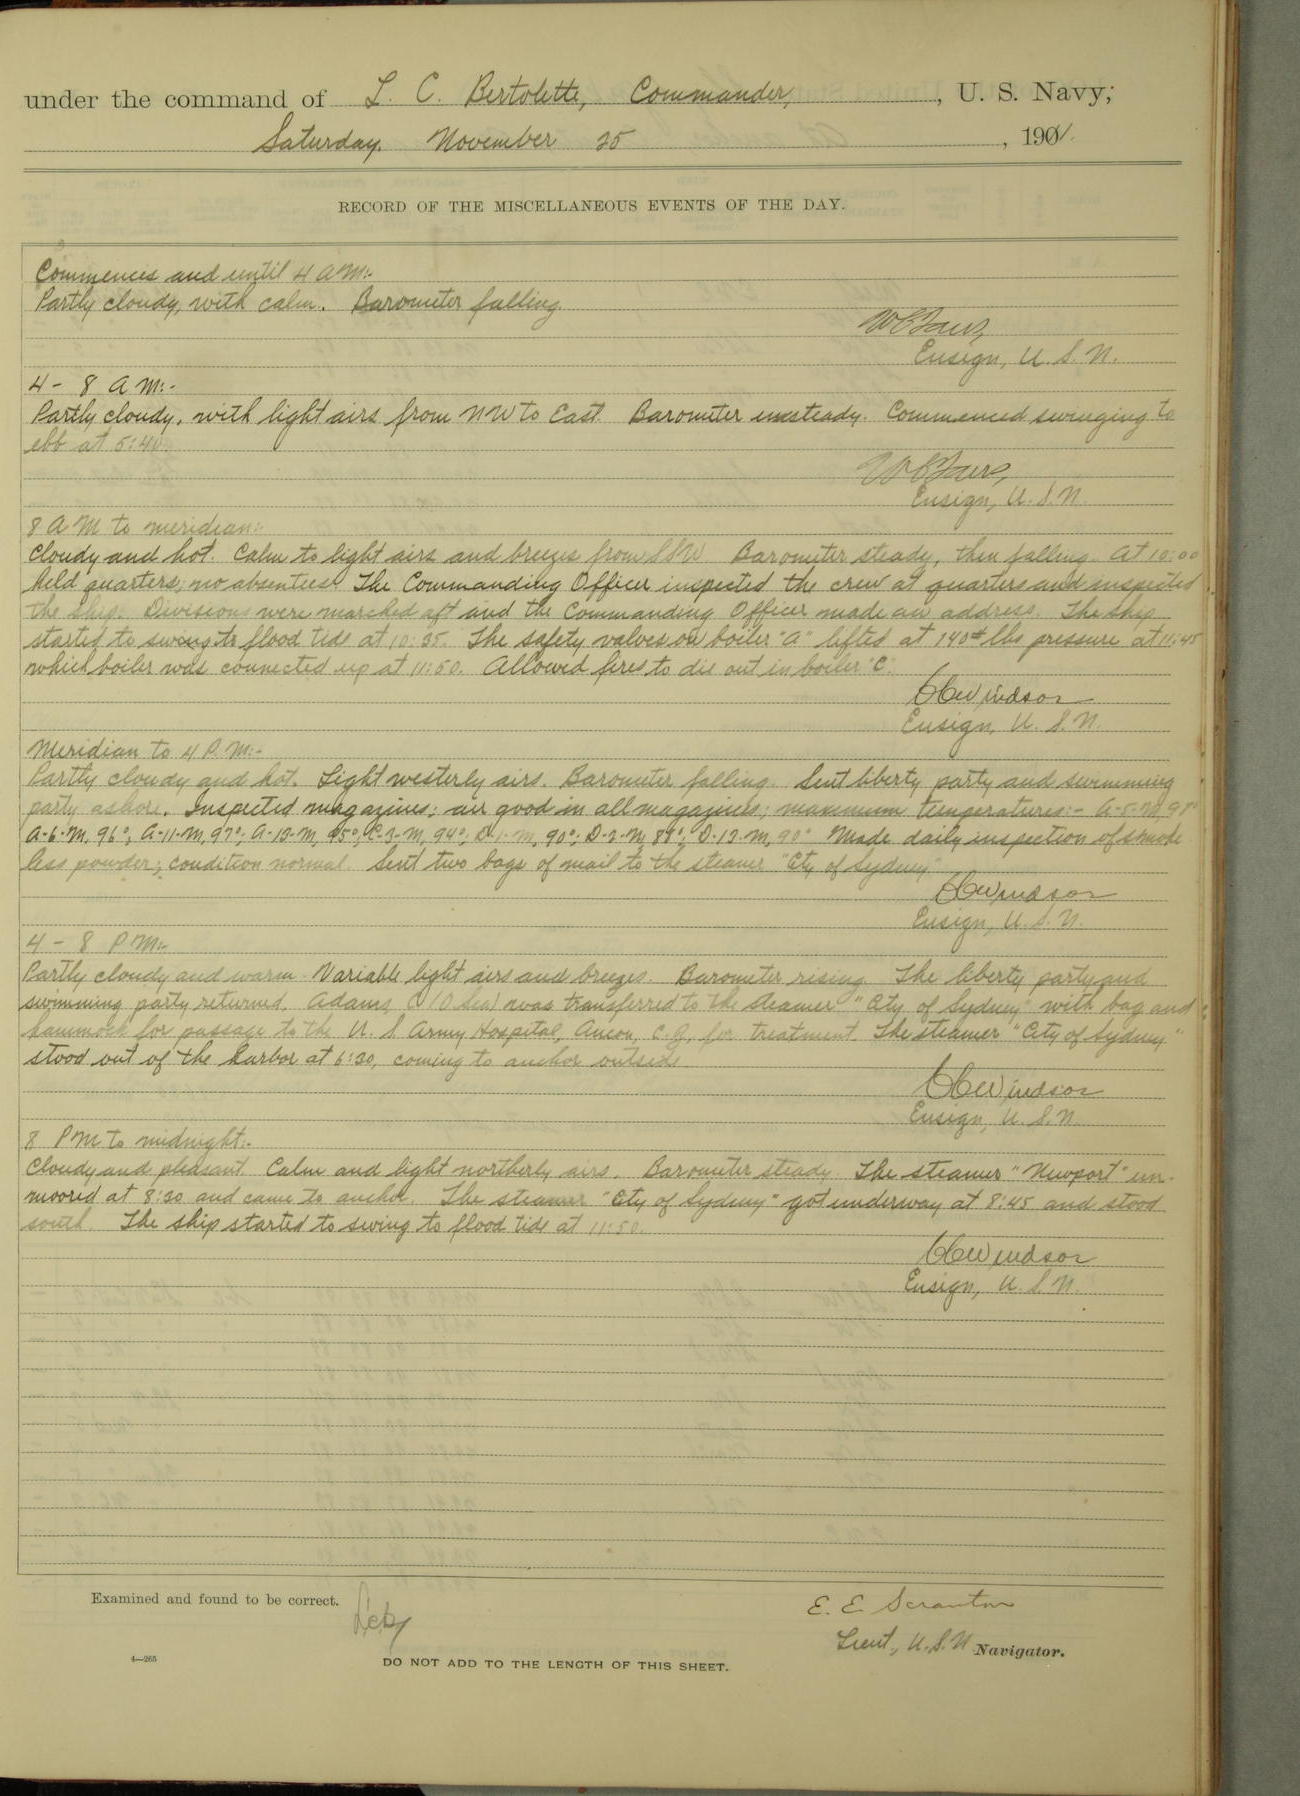 under the command of L. C. Bertolette, Commander, , U. S. Navy;
Saturday, November 25 , 1901.
RECORD OF THE MISCELLANEOUS EVENTS OF THE DAY.
Commences and until 4 A M:-
Partly cloudy, with calm. Barometer falling.
Ensign, U. S. N.
4 - 8 A M:-
Partly cloudy, with light airs from NW to East. Barometer unsteady. Commenced swinging to
ebb at 5:40.
Ensign, U. S. N.
8 A M to meridian:-
Cloudy and hot. Calm to light airs and breezes from SSW Barometer steady, then falling. At 10:00
held quarters; no absentees. The Commanding Officer inspected the crew at quarters and inspected
the ship. Divisions were marched aft and the Commanding Officer made an address. The ship
started to swing to flood tide at 10:35. The safety valves on boiler "A" lifted at 140# lbs pressure at 11:45
which boiler was connected up at 11:50. Allowed fires to die out in boiler "C".
CCWindsor
Ensign, U. S. N.
Meridian to 4 P. M:-
Partly cloudy and hot. Light westerly airs. Barometer falling. Sent liberty party and swimming
party ashore. Inspected magazines; air good in all magazines; maximum temperatures:- A-5-M, 98°
A-6-M, 96°; A-11-M, 97°; A-13-M, 95°; C-3-M, 94°; D-1-M, 90°; D-2-M, 89°; D-13-M, 90° Made daily inspection of smoke
less powder; condition normal. Sent two bags of mail to the steamer "City of Sydney"
CCWindsor
Ensign, U. S. N.
4 - 8 P M:-
Partly cloudy and warm. Variable light airs and breezes. Barometer rising. The liberty party and
swimming party returned. Adams, C (O Sea) was transferred to the steamer "City of Sydney" with bag and
hammock for passage to the U. S. Army Hospital, Ancon, C. Z., for treatment. The steamer "City of Sydney"
stood out of the harbor at 6:30, coming to anchor outside
CCWindsor
Ensign, U. S. N.
8 PM to midnight:-
Cloudy and pleasant. Calm and light northerly airs. Barometer steady. The steamer "Newport" un-
moored at 8:30 and came to anchor. The steamer "City of Sydney" got underway at 8:45 and stood
south. The ship started to swing to flood tide at 11:50.
CCWindsor
Ensign, U. S. N.
Examined and found to be correct.
E. E. Scranton
Lieut., U. S. N. Navigator.
4—265
DO NOT ADD TO THE LENGTH OF THIS SHEET.